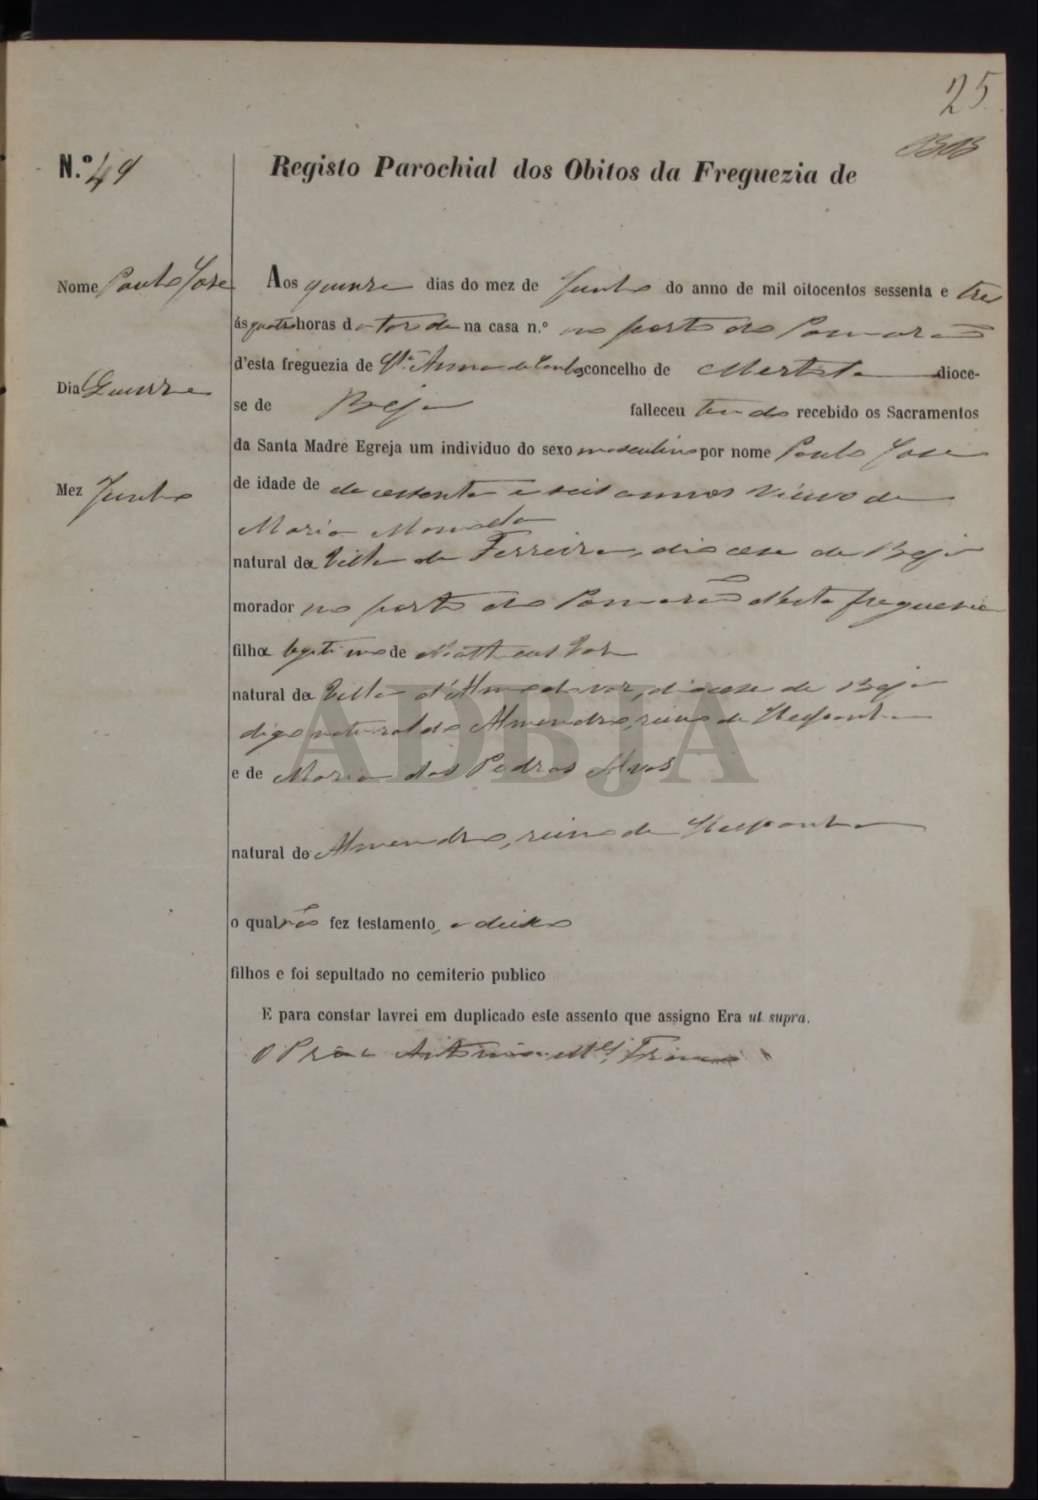 25
N.º 49
Registo Parochial dos Obitos da Freguezia de
Nome Paulo Jose
Dia Quinze
Mez Junho
Aos quinze dias do mez de Junho do anno de mil oitocentos sessenta e tres
ás quatro horas da tarde na casa n.º no porto do Pomarão
d'esta freguezia de Stª Anna de Cambas concelho de Mertola dioce-
se de Beja falleceu tendo recebido os Sacramentos
da Santa Madre Egreja um individuo do sexo masculino por nome Paulo Jose
de idade de de cessenta e seis annos Viuvo de
Maria
natural da Villa de Ferreira, diocese de Beja
morador no porto do Pomarão d'esta freguesia
filho legitimo de Matheus
natural da Villa d'Almodovar, diocese de Beja
digo natural do Almendro, reino de Hespanha
e de Maria das Pedras Alvas
natural do Almendro, reino de Hespanha
o qual não fez testamento, e deixa
filhos e foi sepultado no cemiterio publico
E para constar lavrei em duplicado este assento que assigno Era ut supra.
O Antonio
ADBJA